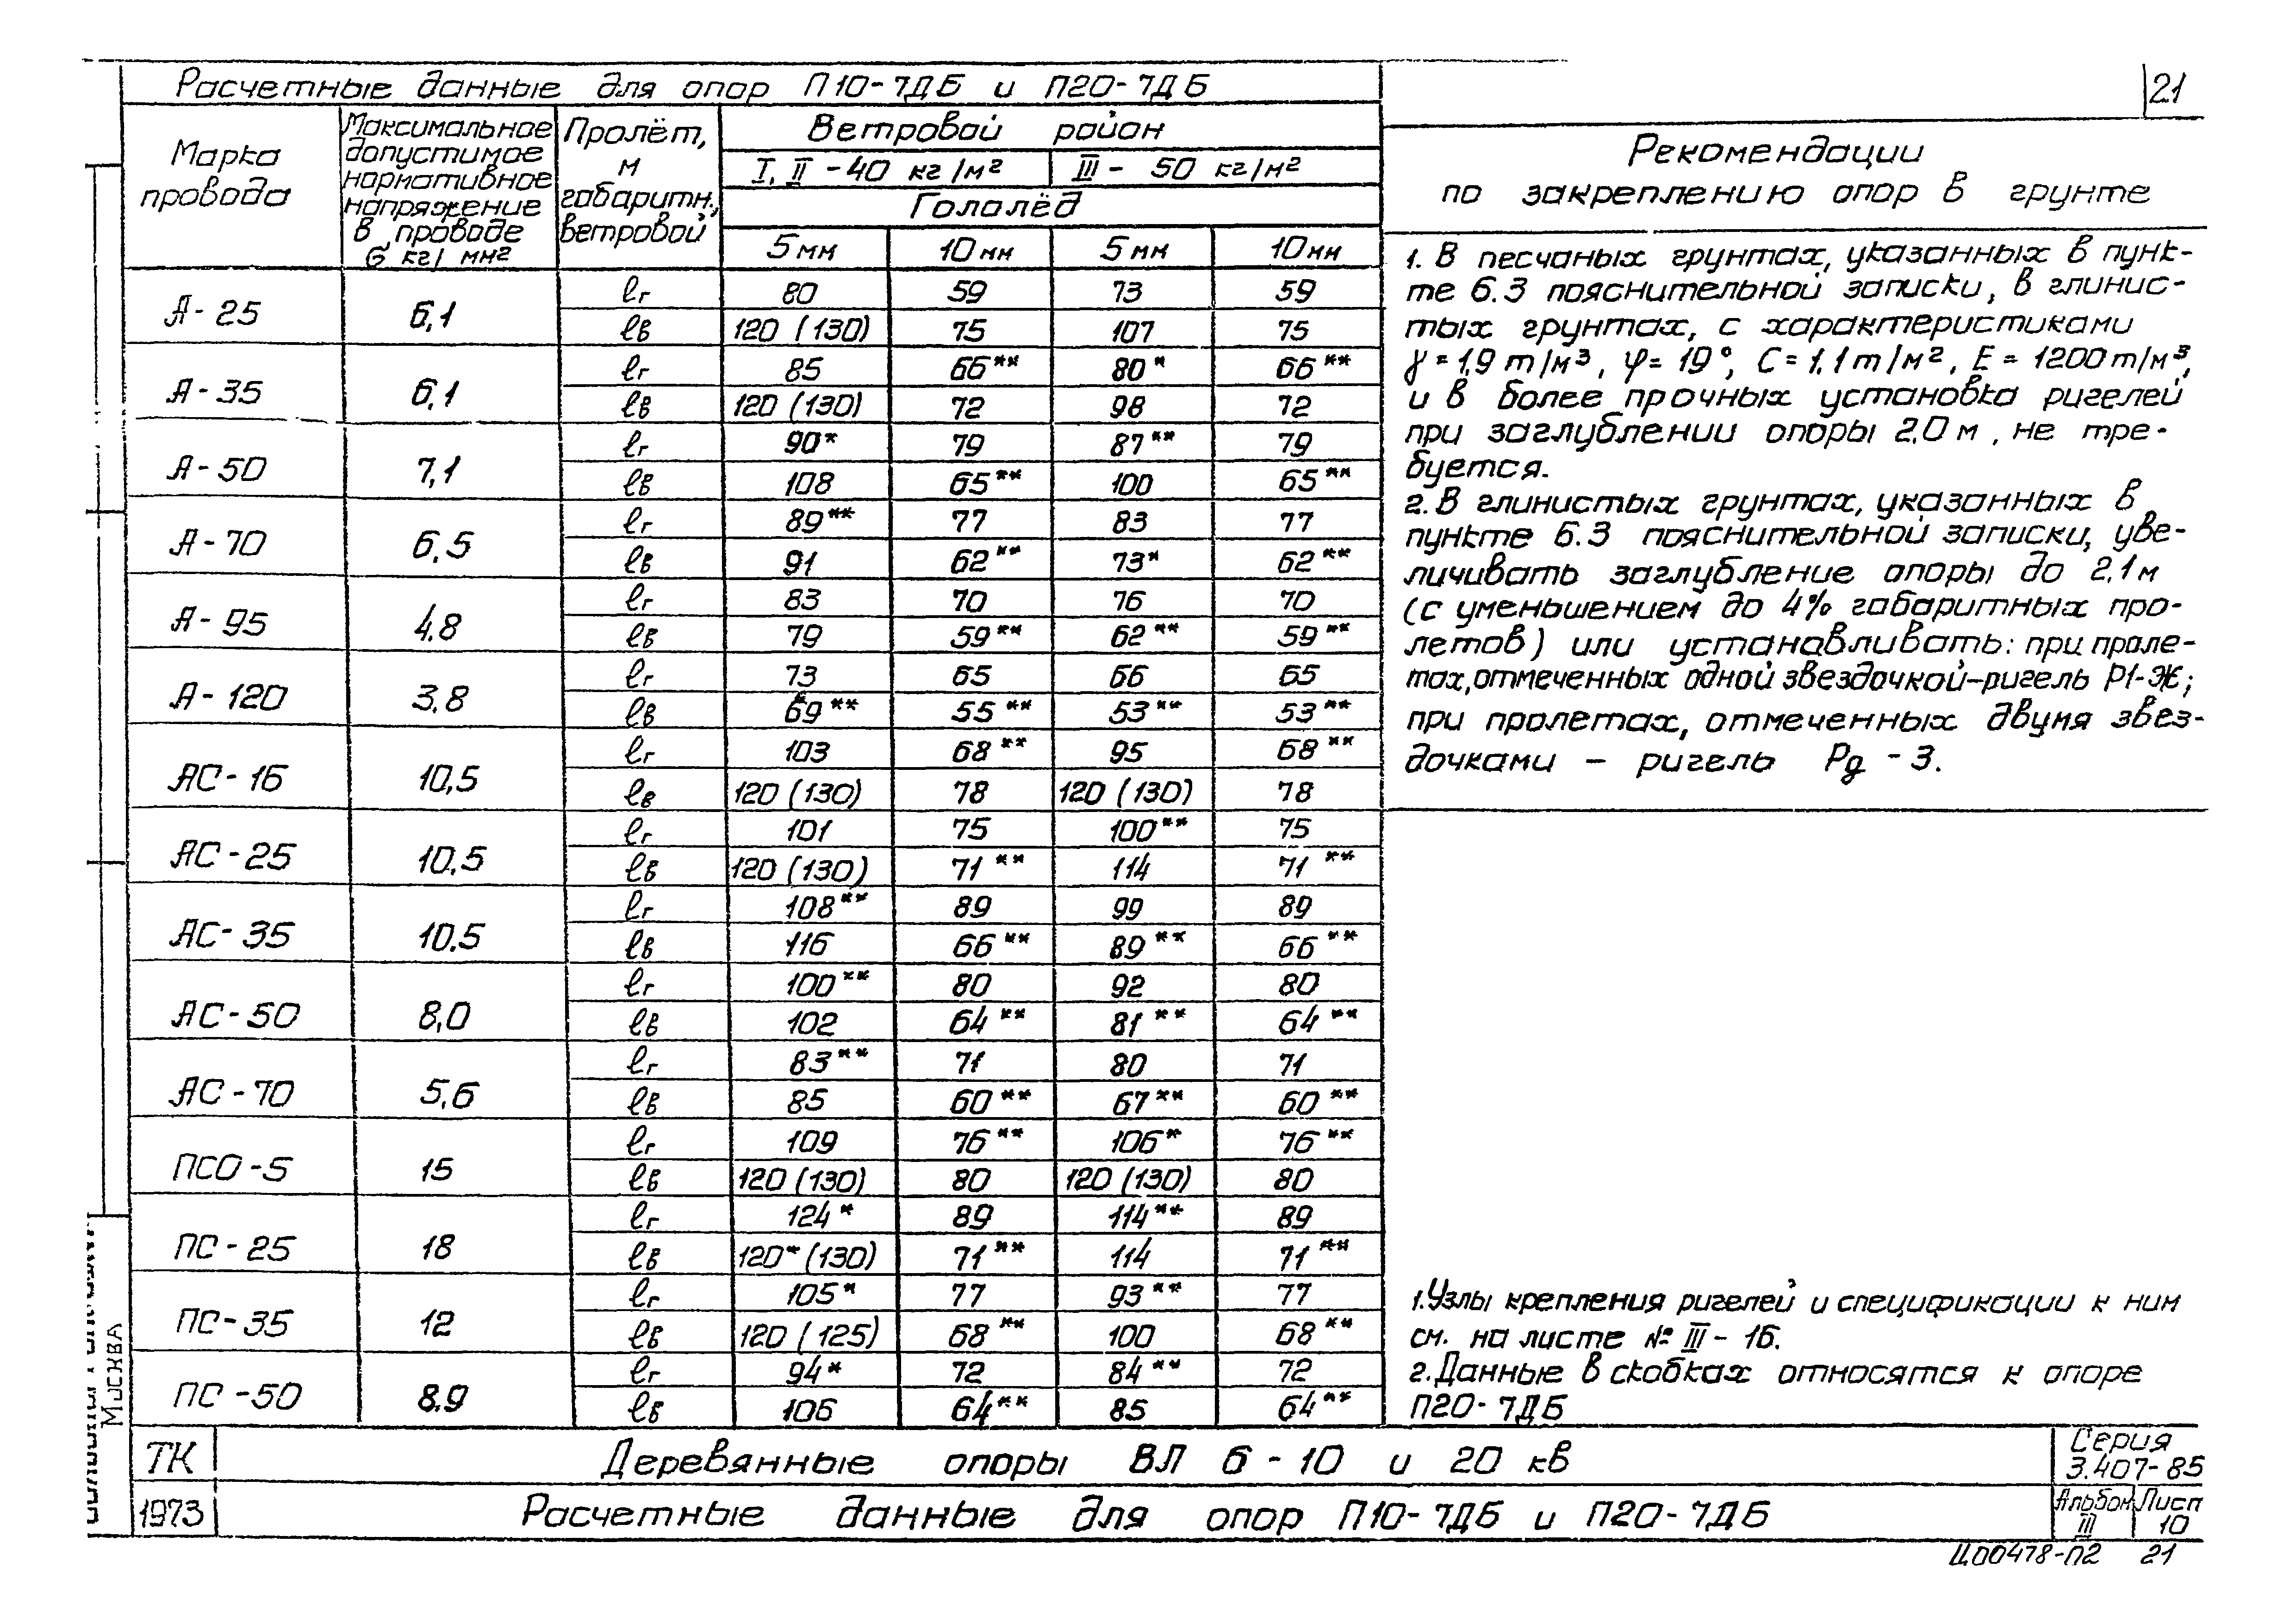 Расчетные данные для опор П10-7ДБ и П20-7ДБ
21
Марка провода
Максимальное допустимое нормативное напряжение в проводе σ кг/мм²
Пролёт, м габаритн., ветровой
Ветровой район
I, II - 40 кг/м² III - 50 кг/м²
Гололёд
5 мм 10 мм 5 мм 10 мм
А-25 6,1 lг 80 59 73 59
lв 120 (130) 75 107 75
А-35 6,1 lг 85 66** 80* 66**
lв 120 (130) 72 98 72
А-50 7,1 lг 90* 79 87** 79
lв 108 65** 100 65**
А-70 6,5 lг 89** 77 83 77
lв 91 62** 73* 62**
А-95 4,8 lг 83 70 76 70
lв 79 59** 62** 59**
А-120 3,8 lг 73 65 66 65
lв 69** 55** 53** 53**
АС-16 10,5 lг 103 68** 95 68**
lв 120 (130) 78 120 (130) 78
АС-25 10,5 lг 101 75 100** 75
lв 120 (130) 71** 114 71**
АС-35 10,5 lг 108** 89 99 89
lв 116 66** 89** 66**
АС-50 8,0 lг 100** 80 92 80
lв 102 64** 81** 64**
АС-70 5,6 lг 83** 71 80 71
lв 85 60** 67** 60**
ПСО-5 15 lг 109 76** 106* 76**
lв 120 (130) 80 120 (130) 80
ПС-25 18 lг 124* 89 114** 89
lв 120* (130) 71** 114 71**
ПС-35 12 lг 105* 77 93** 77
lв 120 (125) 68** 100 68**
ПС-50 8,9 lг 94* 72 84** 72
lв 106 64** 85 64**
Рекомендации
по закреплению опор в грунте
1. В песчаных грунтах, указанных в пунк-
те 6.3 пояснительной записки, в глинис-
тых грунтах, с характеристиками
γ = 1,9 т/м³, φ = 19°, С = 1,1 т/м², Е = 1200 т/м³,
и в более прочных установка ригелей
при заглублении опоры 2,0 м, не тре-
буется.
2. В глинистых грунтах, указанных в
пункте 6.3 пояснительной записки, уве-
личивать заглубление опоры до 2,1 м
(с уменьшением до 4% габаритных про-
летов) или устанавливать: при проле-
тах, отмеченных одной звездочкой-ригель Р1-Ж;
при пролетах, отмеченных двумя звез-
дочками - ригель Рд-3.
1. Узлы крепления ригелей и спецификации к ним
см. на листе № III-16.
2. Данные в скобках относятся к опоре
П20-7ДБ
Москва
ТК Деревянные опоры ВЛ 6-10 и 20 кв
Серия
3.407-85
1973 Расчетные данные для опор П10-7ДБ и П20-7ДБ
Альбом Лист
III 10
Ц00478-П2 21